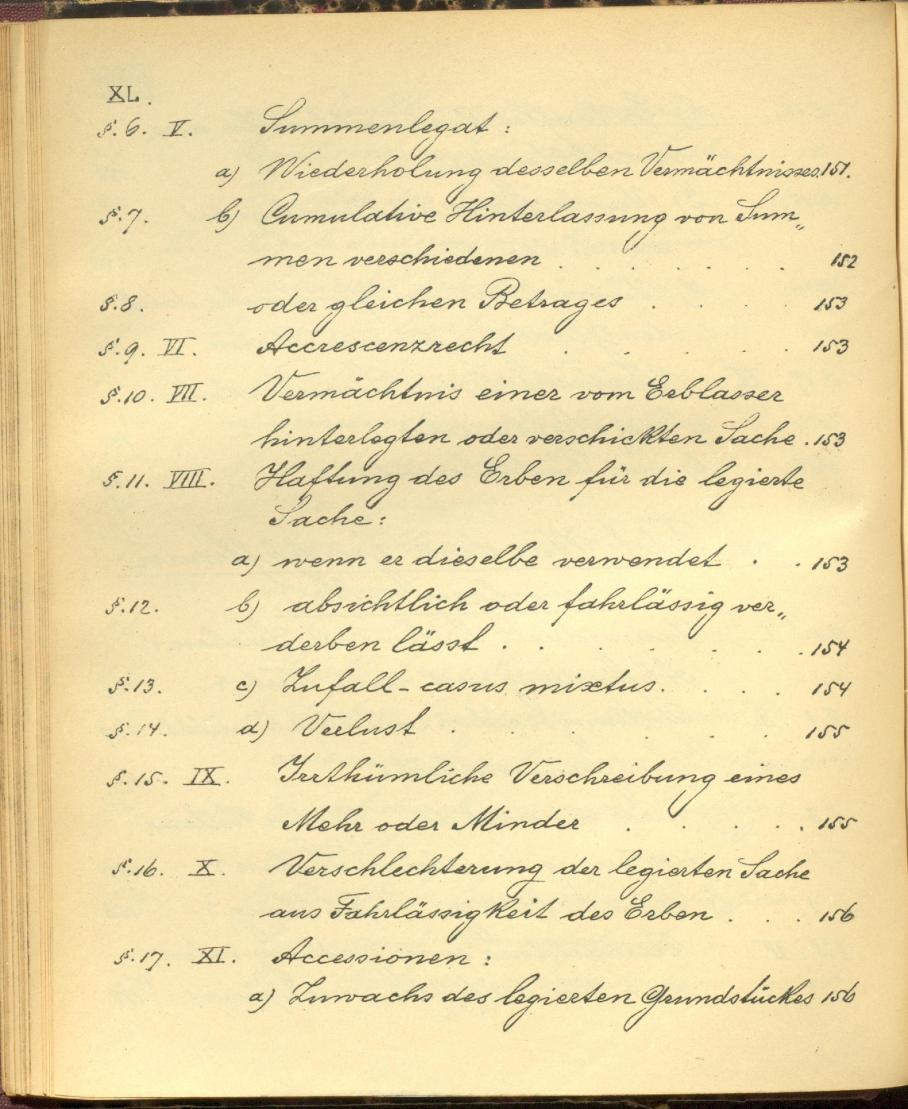 XL.
§.6. V. Summenlegat :
a) Wiederholung desselben Vermächtnisses. 151.
§.7. b) Cumulative Hinterlassung von Sum„
men verschiedenen . . . . . . 152
§.8. oder gleichen Betrages . . . . 153
§.9. VI. Accrescenzrecht . . . . . 153
§.10. VII. Vermächtnis einer vom Erblasser
hinterlegten oder verschickten Sache . 153
§.11. VIII. Haftung des Erben für die legierte
Sache :
a) wenn er dieselbe verwendet . . 153
§.12. b) absichtlich oder fahrlässig ver„
derben lässt . . . . . . 154
§.13. c) Zufall - casus mixtus. . . . 154
§.14. d) Verlust . . . . . . 155
§.15. IX. Irrthümliche Verschreibung eines
Mehr oder Minder . . . . 155
§.16. X. Verschlechterung der legierten Sache
aus Fahrlässigkeit des Erben . . . 156
§.17. XI. Accessionen :
a) Zuwachs des legierten Grundstückes 156